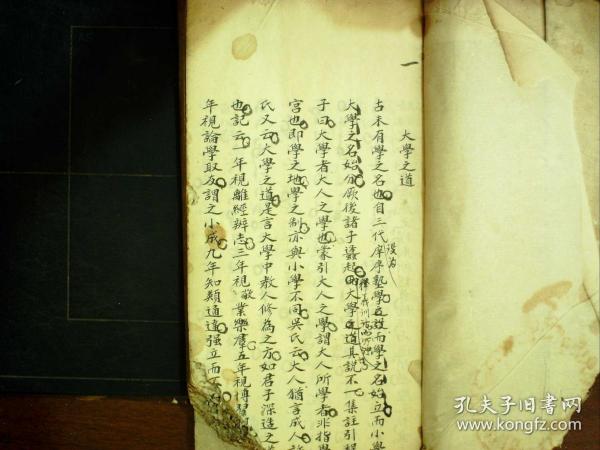 一
大學之道
古未有學之名也自三代庠序塾學並設而學之名始立而小學
大學之名始分厥後諸子蠭起而大學之道其說不一集註引程
子曰大學者大人之學也蒙引大人之學謂大人所學者非指學
宮也即學之地學之制亦與小學不同吳氏云大人猶言成人許
氏又云大學之道是言大學中教人修為之方如君子深造之道
也記云一年視離經辨志三年視敬業樂羣五年視博習
年視論學取友謂之小成九年知類通達强立而不
孔夫子旧书网
www.kongfz.com